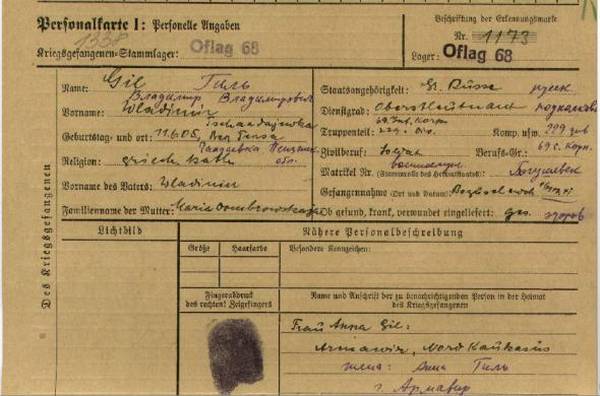 Personalkarte I: Personelle Angaben
Kriegsgefangenen-Stammlager: Oflag 68
Beschriftung der Erkennungsmarke
Nr. 1173
Lager: Oflag 68
Des Kriegsgefangenen
Name: Gil Гиль
Владимир Владимирович
Vorname: Wladimir
Geburtstag- und ort: 11.6.05,
Religion: griech. kath.
обл.
Vorname des Vaters: Wladimir
Familienname der Mutter: Maria Dombrowskaja
Staatsangehörigkeit: Russe русск
Dienstgrad: Oberstleutnant
Truppenteil: 229. Div. Komp. usw. 229
Zivilberuf: Soldat Berufs-Gr.: 69 с. корп.
Matrikel Nr. (Stammrolle des Heimatstaates): Богушевск
Gefangennahme (Ort und Datum):
Ob gesund, krank, verwundet eingeliefert: ges. здоров
Lichtbild
Nähere Personalbeschreibung
Größe
Haarfarbe
Besondere Kennzeichen:
Fingerabdruck
des rechten! Zeigefingers
Name und Anschrift der zu benachrichtigenden Person in der Heimat
des Kriegsgefangenen
Frau Anna Gil:
Armawir, Nord Kaukasus
жена: Анна Гиль
г. Армавир